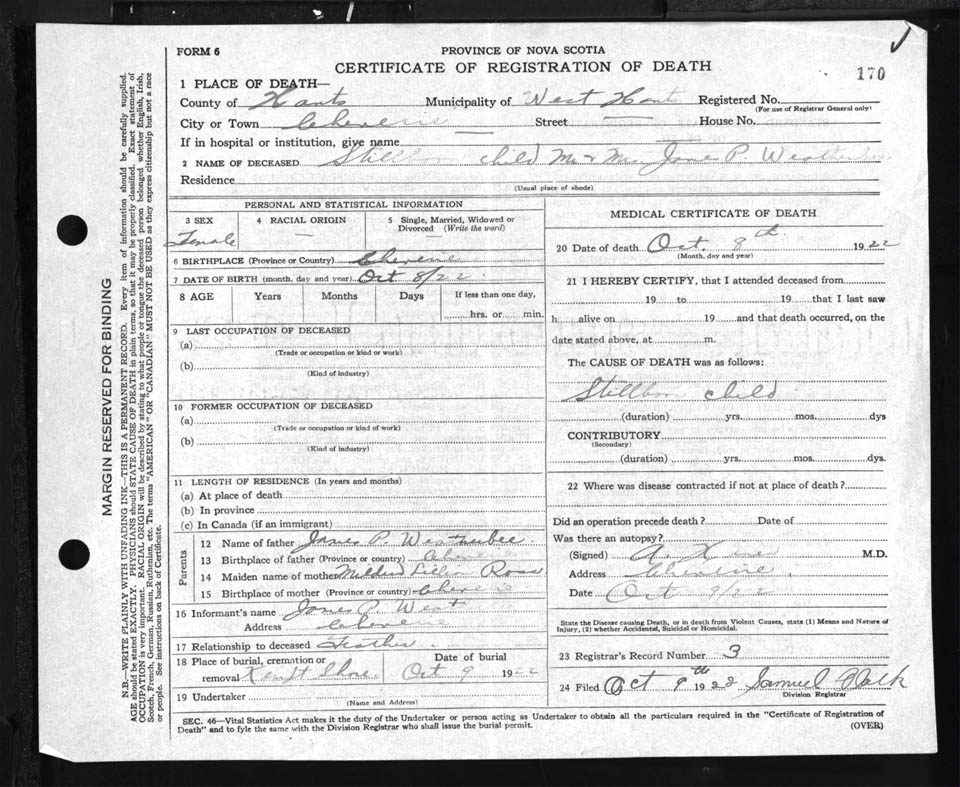 FORM 6
PROVINCE OF NOVA SCOTIA
CERTIFICATE OF REGISTRATION OF DEATH
170
1 PLACE OF DEATH—
County of Hants Municipality of West Hants Registered No.
(For use of Registrar General only)
City or Town Cheverie Street — House No.
If in hospital or institution, give name
2 NAME OF DECEASED Stillborn child Mr & Mrs James P. Weatherbee
Residence
(Usual place of abode)
PERSONAL AND STATISTICAL INFORMATION
3 SEX 4 RACIAL ORIGIN 5 Single, Married, Widowed or
Divorced (Write the word)
Female — —
6 BIRTHPLACE (Province or Country) Cheverie
7 DATE OF BIRTH (month, day and year) Oct 8/22
8 AGE Years Months Days If less than one day,
hrs. or min.
9 LAST OCCUPATION OF DECEASED
(a)
(Trade or occupation or kind or work)
(b)
(Kind of industry)
10 FORMER OCCUPATION OF DECEASED
(a)
(Trade or occupation or kind of work)
(b)
(Kind of industry)
11 LENGTH OF RESIDENCE (In years and months)
(a) At place of death
(b) In province
(c) In Canada (if an immigrant)
Parents
12 Name of father James P. Weatherbee
13 Birthplace of father (Province or country) Cheverie
14 Maiden name of mother Lillian Rose
15 Birthplace of mother (Province or country) Cheverie
16 Informant's name James P. Weat
Address Cheverie
17 Relationship to deceased Father
18 Place of burial, cremation or Date of burial
removal Kempt Shore Oct 9 1922
19 Undertaker
(Name and Address)
MEDICAL CERTIFICATE OF DEATH
20 Date of death Oct. 8th 1922
(Month, day and year)
21 I HEREBY CERTIFY, that I attended deceased from
19 to 19 that I last saw
h alive on 19 and that death occurred, on the
date stated above, at m.
The CAUSE OF DEATH was as follows:
Stillborn child
(duration) yrs. mos. dys
CONTRIBUTORY
(Secondary)
(duration) yrs. mos. dys.
22 Where was disease contracted if not at place of death?
Did an operation precede death? Date of
Was there an autopsy?
(Signed) M.D.
Address Cheverie
Date Oct 9/22
State the Disease causing Death, or in death from Violent Causes, state (1) Means and Nature of
Injury, (2) whether Accidental, Suicidal or Homicidal.
23 Registrar's Record Number 3
24 Filed Oct 9th 1922 Samuel Clark
Division Registrar
SEC. 46—Vital Statistics Act makes it the duty of the Undertaker or person acting as Undertaker to obtain all the particulars required in the "Certificate of Registration of
Death" and to fyle the same with the Division Registrar who shall issue the burial permit.
(OVER)
MARGIN RESERVED FOR BINDING
N.B.—WRITE PLAINLY WITH UNFADING INK—THIS IS A PERMANENT RECORD. Every item of information should be carefully supplied.
AGE should be stated EXACTLY. PHYSICIANS should STATE CAUSE OF DEATH in plain terms, so that it may be properly classified. Exact statement of
OCCUPATION is very important. RACIAL ORIGIN will be described by stating to what people or tongue the deceased person belonged whether English, Irish,
Scotch, French, German, Russian, Ruthenian, etc. The terms "AMERICAN" OR "CANADIAN" MUST NOT BE USED as they express citizenship but not a race
or people. See instructions on back of Certificate.